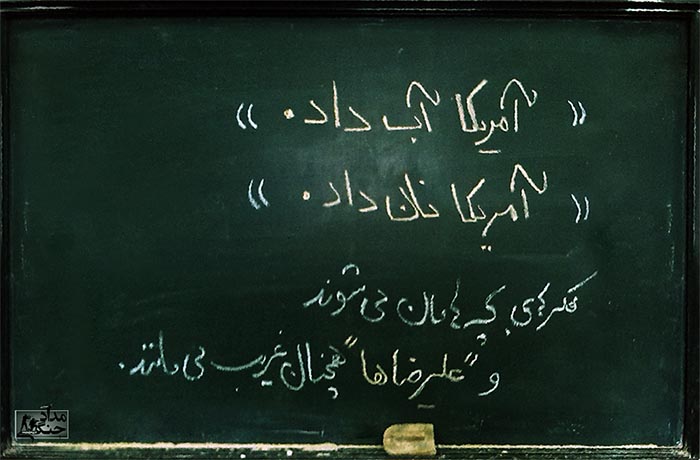 « آمریکا آب داد. »
« آمریکا نان داد. »
فکر کردی بچه هامان می شوند
و "علیرضاها" همچنان غریب می مانند.
مداد جنگی